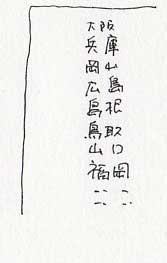 大阪
兵庫
岡山
広島
島根
鳥取
山口
福岡